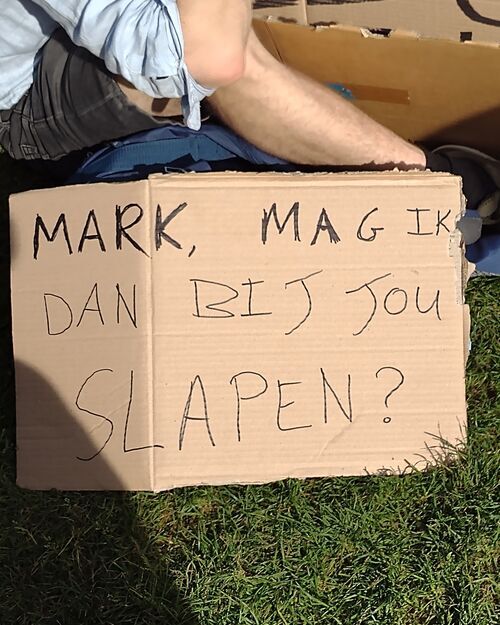 MARK, MAG IK
DAN BIJ JOU
SLAPEN?